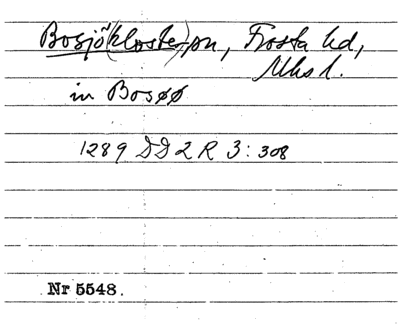 Bosjö(kloster)sn, Frosta hd,
Mhs l.
in Bosøø
1289 DD 2 R 3:308
Nr 5548.